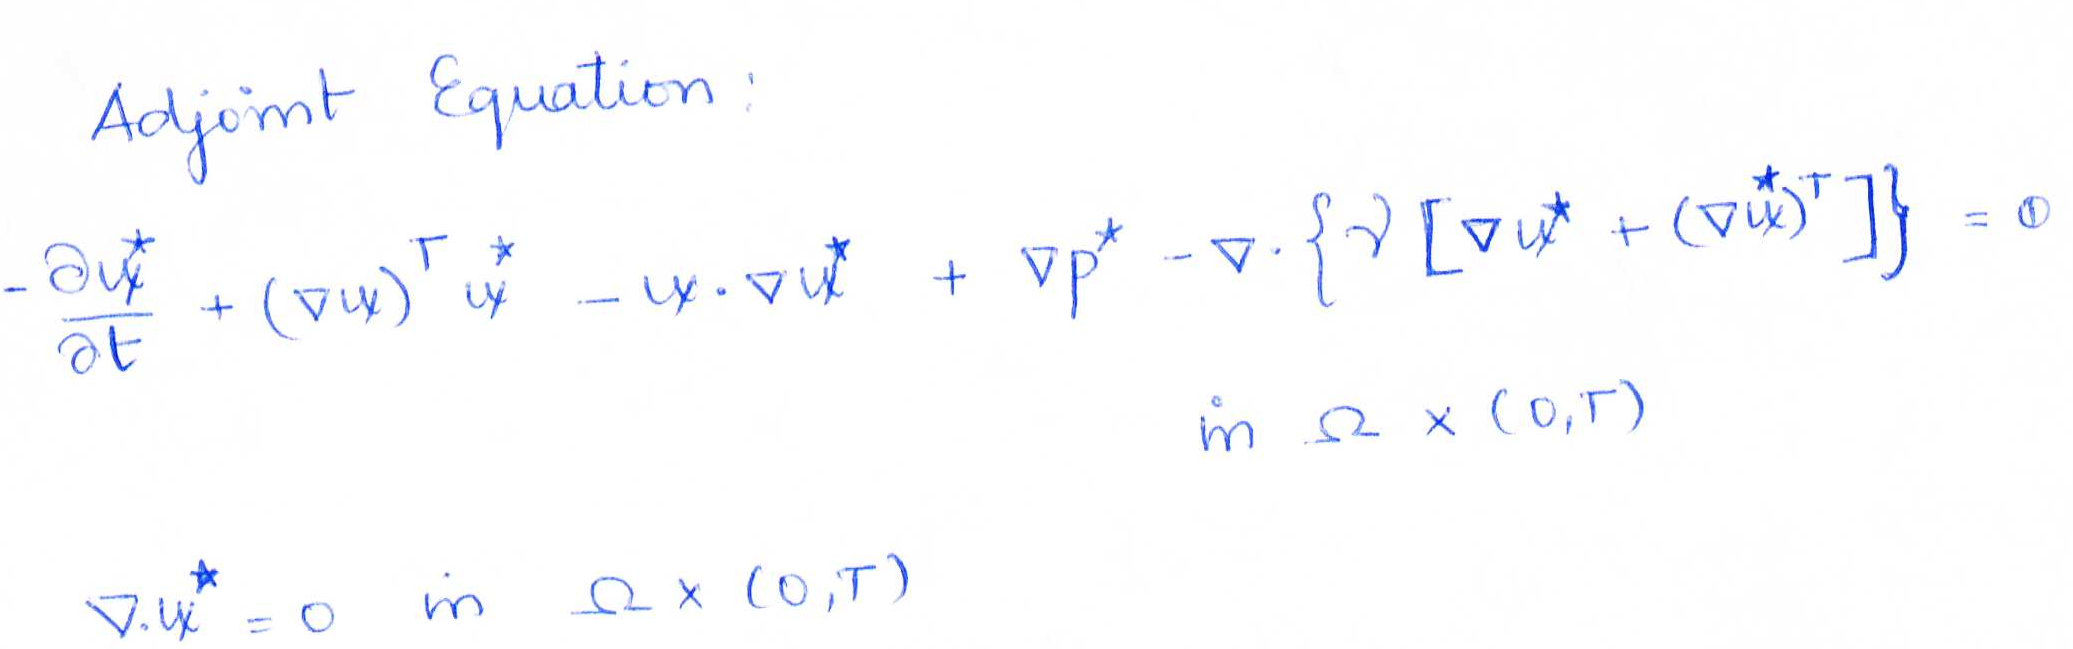 Adjoint Equation:
$-\frac{\partial \mathbf{u}^\star}{\partial t} + (\nabla \mathbf{u})^T \mathbf{u}^\star - \mathbf{u} \cdot \nabla \mathbf{u}^\star + \nabla p^\star - \nabla \cdot \{ \nu [ \nabla \mathbf{u}^\star + (\nabla \mathbf{u}^\star)^T ] \} = \mathbf{0}$
in $\Omega \times (0,T)$
$\nabla \cdot \mathbf{u}^\star = 0$ in $\Omega \times (0,T)$